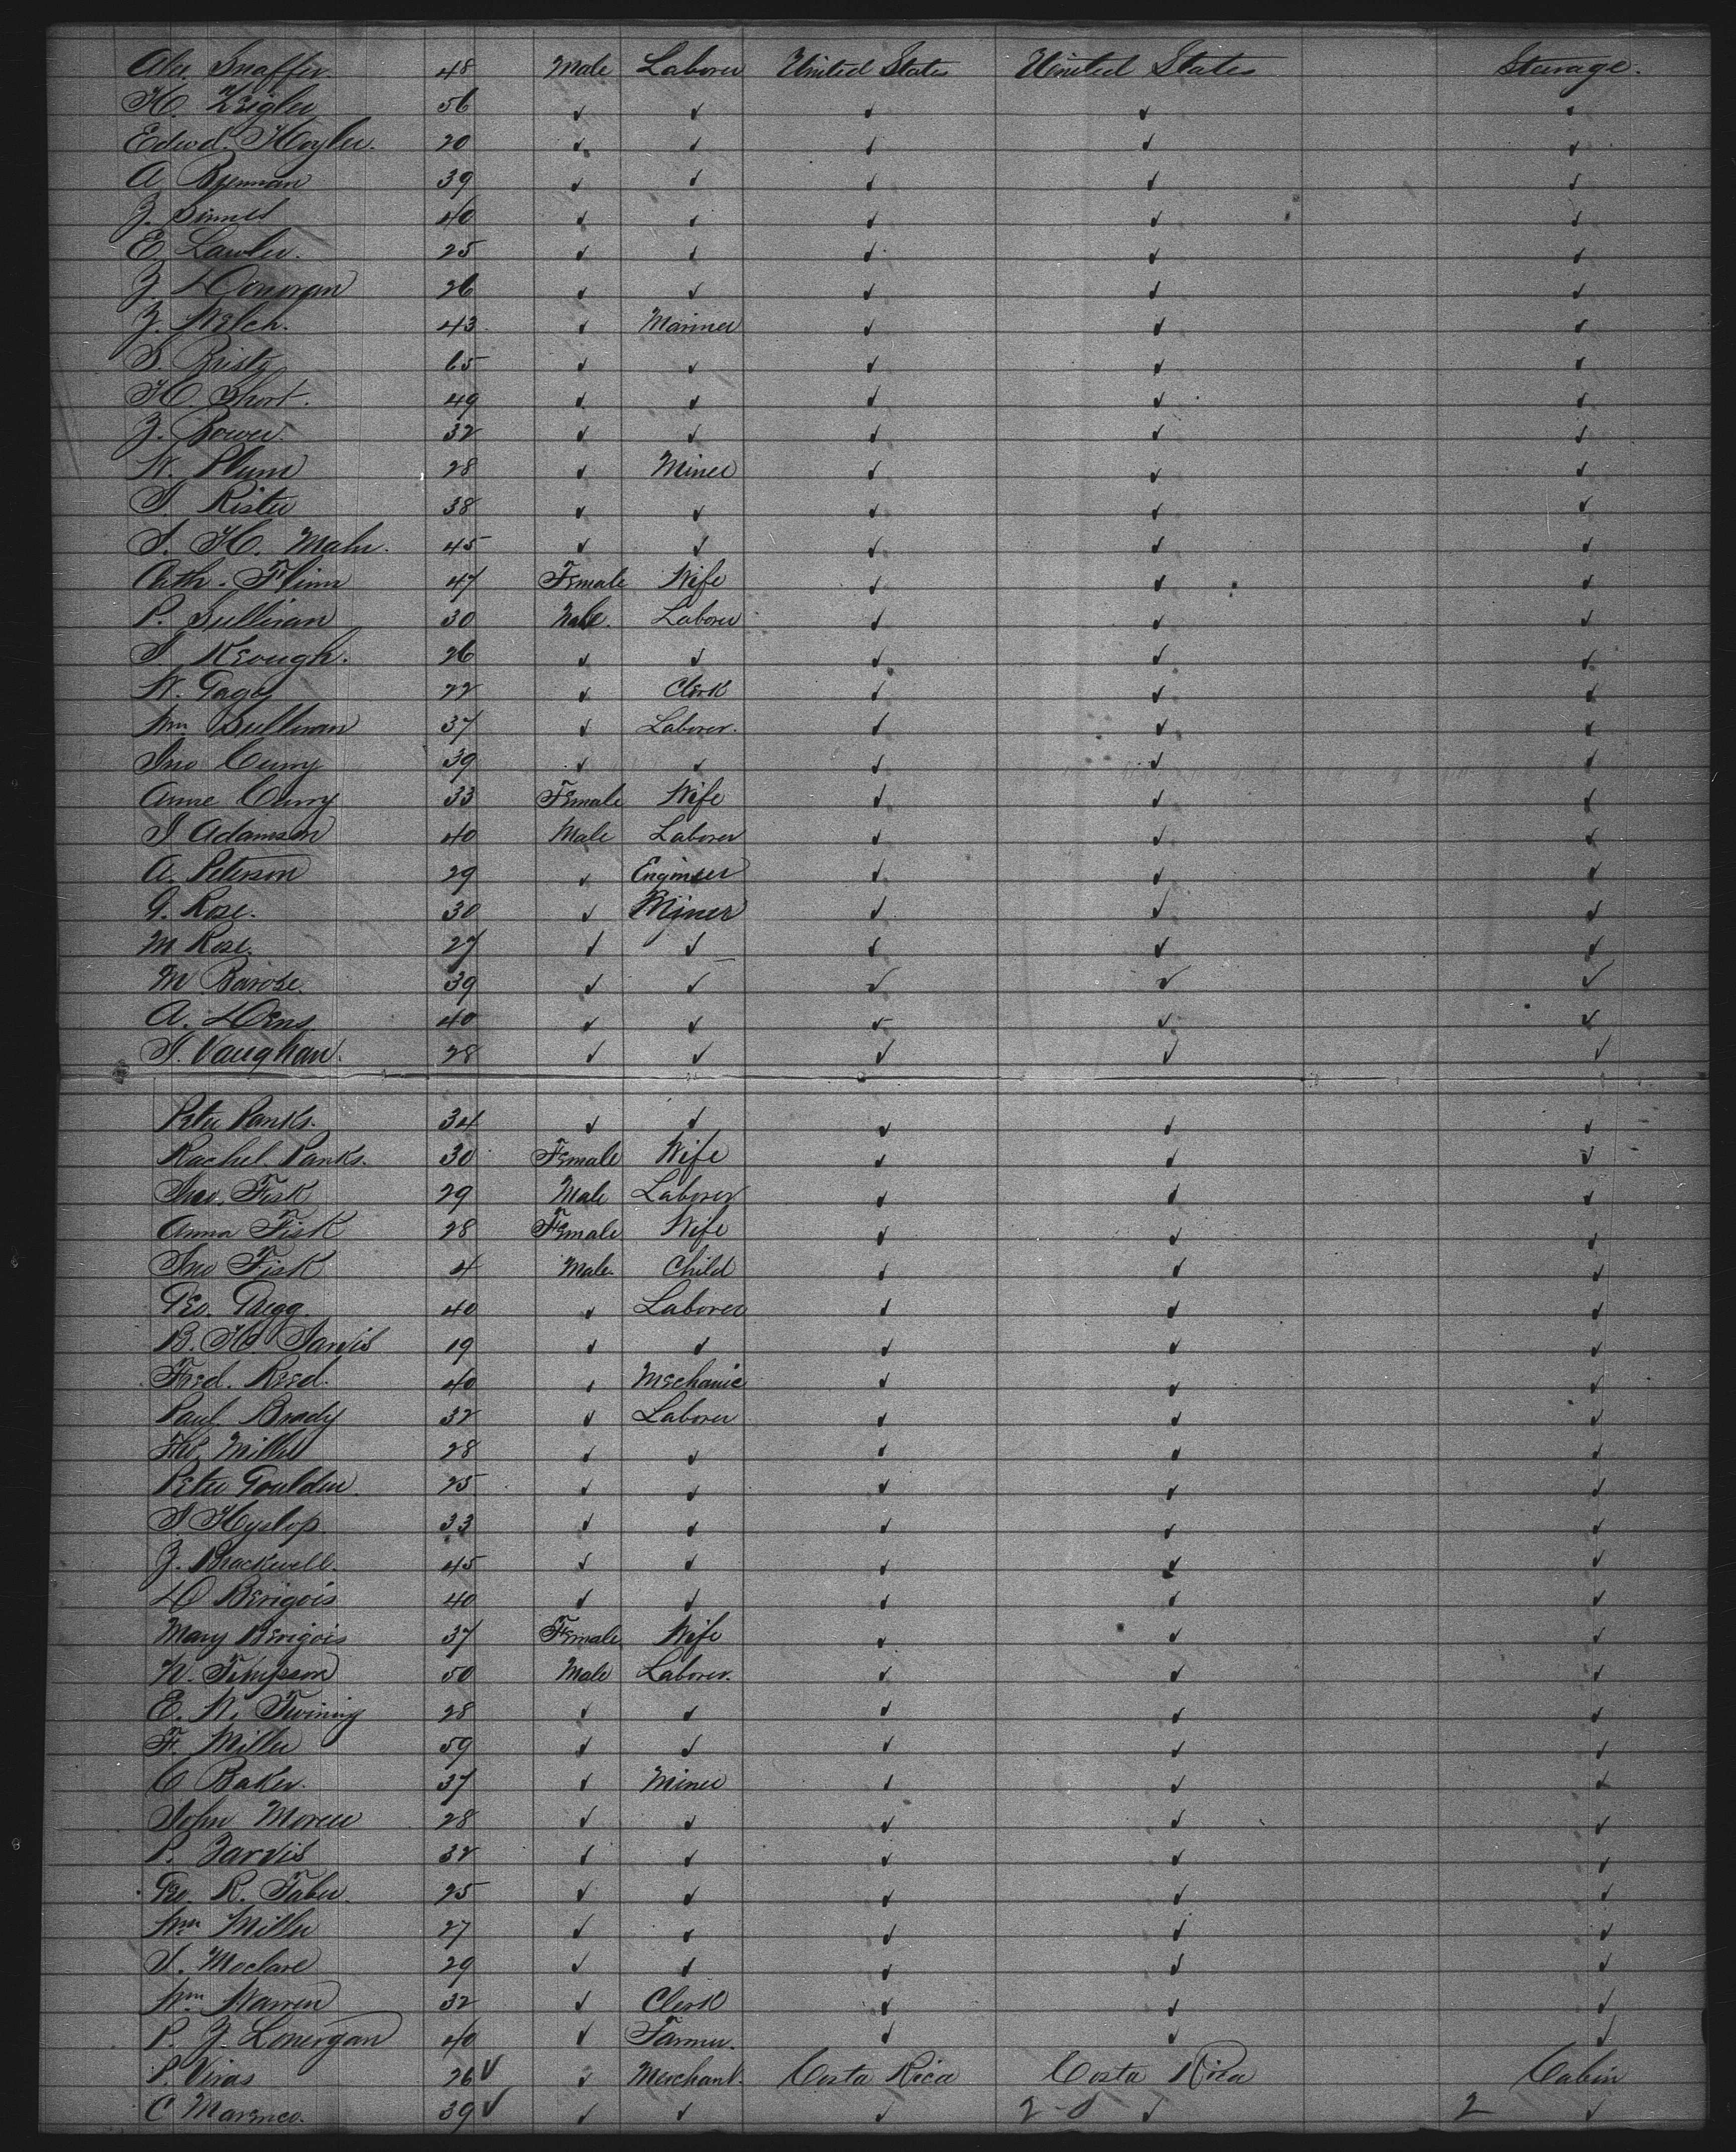 Alex. Snaffer. 48 Male Laborer United States United States Steerage.
H. Zeigler 56 ✓ ✓ ✓ ✓ ✓
Edwd. Hoyler. 20 ✓ ✓ ✓ ✓ ✓
A Brennan 39 ✓ ✓ ✓ ✓ ✓
J. 40 ✓ ✓ ✓ ✓ ✓
E. Lawler. 25 ✓ ✓ ✓ ✓ ✓
J. Donovan 26 ✓ ✓ ✓ ✓ ✓
J. Welch. 43 ✓ Mariner ✓ ✓ ✓
S. 65 ✓ ✓ ✓ ✓ ✓
H. Short. 49 ✓ ✓ ✓ ✓ ✓
J. Bower. 32 ✓ ✓ ✓ ✓ ✓
W. Plum 28 ✓ Miner ✓ ✓ ✓
J. Rister 38 ✓ ✓ ✓ ✓ ✓
S. H. Maher. 45 ✓ ✓ ✓ ✓ ✓
Cath. Flinn 47 Female Wife ✓ ✓ ✓
P. Sullivan 30 Male. Laborer ✓ ✓ ✓
J. Keough. 26 ✓ ✓ ✓ ✓ ✓
W. 22 ✓ Clerk ✓ ✓ ✓
Wm Sullivan 37 ✓ Laborer. ✓ ✓ ✓
Jno Curry 39 ✓ ✓ ✓ ✓ ✓
Anne Curry 33 Female Wife ✓ ✓ ✓
J Adamson 40 Male Laborer ✓ ✓ ✓
A. Peterson 29 ✓ Engineer ✓ ✓ ✓
G. Rose. 30 ✓ Miner ✓ ✓ ✓
M Rose. 27 ✓ ✓ ✓ ✓ ✓
M Barose. 39 ✓ ✓ ✓ ✓ ✓
A. Dens 40 ✓ ✓ ✓ ✓ ✓
J. Vaughan. 28 ✓ ✓ ✓ ✓ ✓
Peter Panks. 34 ✓ ✓ ✓ ✓ ✓
Rachel Panks. 30 Female Wife ✓ ✓ ✓
Thos. Fisk 29 Male Laborer ✓ ✓ ✓
Anna Fisk 28 Female Wife ✓ ✓ ✓
Jno Fisk 4 Male Child ✓ ✓ ✓
Geo. Gregg. 40 ✓ Laborer ✓ ✓ ✓
B. H. Jarvis 19 ✓ ✓ ✓ ✓ ✓
Fred. Reed. 40 ✓ Mechanic ✓ ✓ ✓
Paul Brady 32 ✓ Laborer ✓ ✓ ✓
Miller 28 ✓ ✓ ✓ ✓ ✓
Peter Goulden. 25 ✓ ✓ ✓ ✓ ✓
J. Hyslop. 33 ✓ ✓ ✓ ✓ ✓
J. Brackwell. 45 ✓ ✓ ✓ ✓ ✓
D Berigois 40 ✓ ✓ ✓ ✓ ✓
Mary Berigois 37 Female Wife ✓ ✓ ✓
W. Timpson 50 Male Laborer. ✓ ✓ ✓
E. W. Twining 28 ✓ ✓ ✓ ✓ ✓
F. Miller 59 ✓ ✓ ✓ ✓ ✓
C Baker. 37 ✓ Miner ✓ ✓ ✓
John Moreu 28 ✓ ✓ ✓ ✓ ✓
P. Jarvis 32 ✓ ✓ ✓ ✓ ✓
Geo. R. Taber. 25 ✓ ✓ ✓ ✓ ✓
Wm Miller 27 ✓ ✓ ✓ ✓ ✓
J. Moclare 29 ✓ ✓ ✓ ✓ ✓
Wm Warren 32 ✓ Clerk ✓ ✓ ✓
P. J. Lonergan 40 ✓ Farmer. ✓ ✓ ✓
P. Viras 26 ✓ ✓ Merchant. Costa Rica Costa Rica Cabin
C Marenco. 39 ✓ ✓ ✓ ✓ 2-0 ✓ 2 ✓